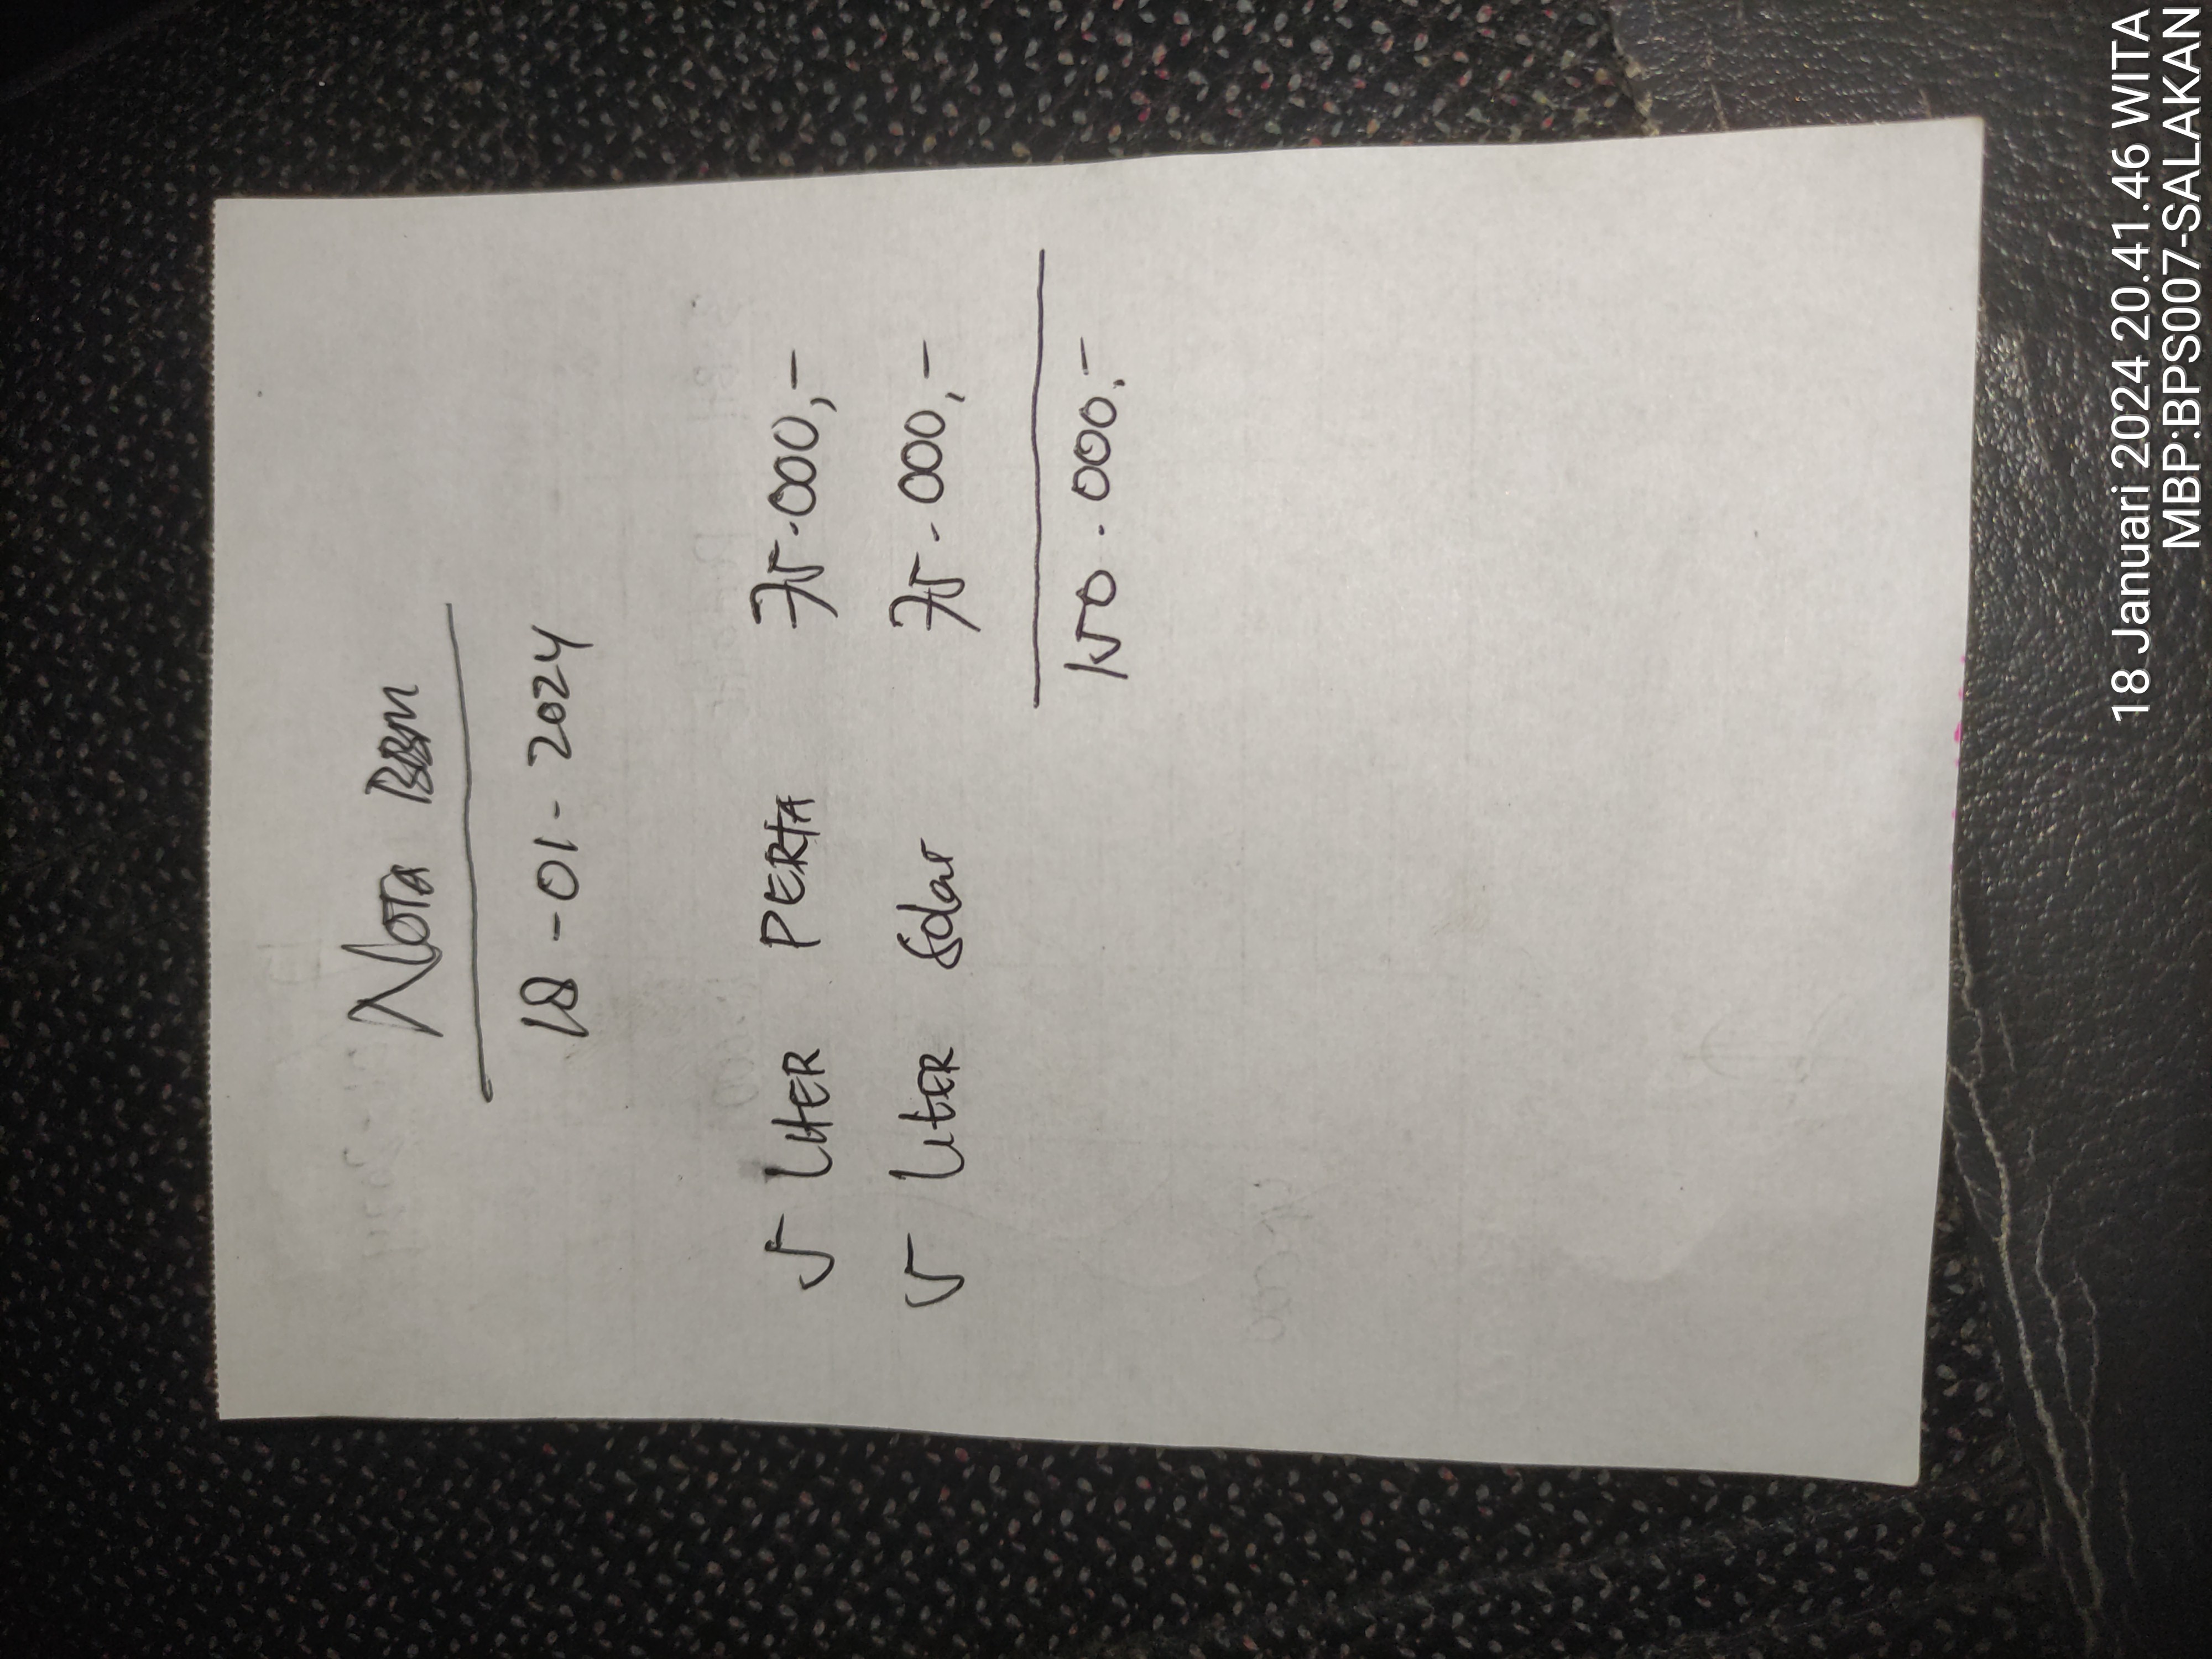 Nota BBM
18-01-2024
5 LITER PERTA 75.000,-
5 LITER Solar 75.000,-
150.000,-
18 Januari 2024 20.41.46 WITA
MBP:BPS007-SALAKAN